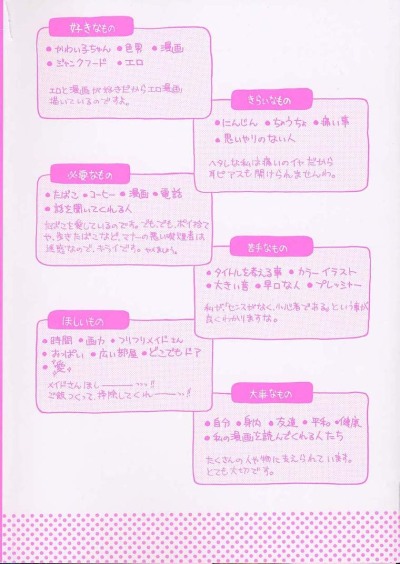 好きなもの
● かわい子ちゃん ● 色男 ● 漫画
● ジャンクフード ● エロ
エロと漫画が好きだからエロ漫画
描いているのですよ。
きらいなもの
● にんじん ● ちゅうちょ ● 痛い事
● 思いやりのない人
ヘタレな私は痛いのイヤだから
ピアスも開けられませんわ。
必要なもの
● たばこ ● コーヒー ● 漫画 ● 電話
● 話を聞いてくれる人
たばこを愛しているのです。でもでも、ポイ捨て
や、歩きたばこなど、マナーの悪い喫煙者は
迷惑なので、キライです。やめましょう。
苦手なもの
● タイトルを考える事 ● カラーイラスト
● 大きい音 ● 早口な人 ● プレッシャー
私が「センスがなく、小心者である」という事が
良くわかりますな。
ほしいもの
● 時間 ● 画力 ● フリフリメイドさん
● おっぱい ● 広い部屋 ● どこでもドア
● “愛”
メイドさんほしーーー…!!
ご飯つくって、掃除してくれーーー…!!
大事なもの
● 自分 ● 身内 ● 友達 ● 平和 ● 健康
● 私の漫画を読んでくれる人たち
たくさんの人や物に支えられています。
とても大切です。